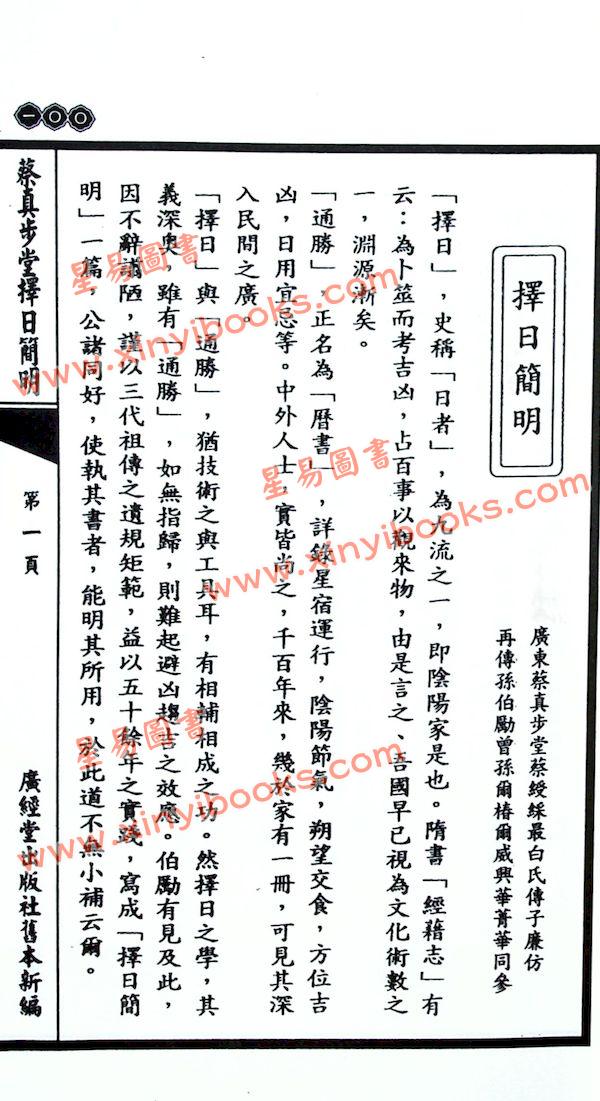 擇日簡明
廣東蔡真步堂蔡綬綵最白氏傳子廉仿
再傳孫伯勵曾孫爾椿爾威興華菁華同參
「擇日」，史稱「日者」，為九流之一，即陰陽家是也。隋書「經藉志」有
云：為卜筮而考吉凶，占百事以觀來物，由是言之、吾國早已視為文化術數之
一，淵源漸矣。
「通勝」正名為「曆書」，詳錄星宿運行，陰陽節氣，朔望交食，方位吉
凶，日用宜忌等。中外人士，實皆尚之，千百年來，幾於家有一冊，可見其深
入民間之廣。
「擇日」與「通勝」，猶技術之與工具耳，有相輔相成之功。然擇日之學，其
義深奧，雖有「通勝」，如無指歸，則難起避凶趨吉之效應。伯勵有見及此，
因不辭譾陋，謹以三代祖傳之遺規矩範，益以五十餘年之實踐，寫成「擇日簡
明」一篇，公諸同好，使執其書者，能明其所用，於此道不無小補云爾。
一〇〇
蔡真步堂擇日簡明
第一頁
廣經堂出版社舊本新編
星易圖書
www.xinyibooks.com
星易圖書
www.xinyibooks.com
星易圖書
www.xinyibooks.com